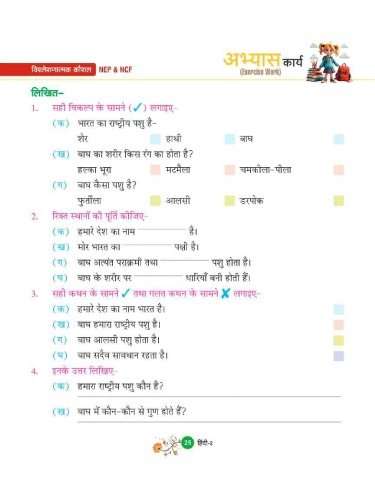 अभ्यास कार्य
(Exercise Work)
विश्लेषणात्मक कौशल NEP & NCF
लिखित–
1. सही विकल्प के सामने (✓) लगाइए–
(क) भारत का राष्ट्रीय पशु है–
शेर हाथी बाघ
(ख) बाघ का शरीर किस रंग का होता है?
हल्का भूरा मटमैला चमकीला-पीला
(ग) बाघ कैसा पशु है?
फुर्तीला आलसी डरपोक
2. रिक्त स्थानों की पूर्ति कीजिए–
(क) हमारे देश का नाम ____________ है।
(ख) मोर भारत का ____________ पक्षी है।
(ग) बाघ अत्यंत पराक्रमी तथा ____________ पशु होता है।
(घ) बाघ के शरीर पर ____________ धारियाँ बनी होती हैं।
3. सही कथन के सामने ✓ तथा गलत कथन के सामने ✗ लगाइए–
(क) हमारे देश का नाम भारत है।
(ख) बाघ हमारा राष्ट्रीय पशु है।
(ग) बाघ आलसी पशु होता है।
(घ) बाघ सदैव सावधान रहता है।
4. इनके उत्तर लिखिए–
(क) हमारा राष्ट्रीय पशु कौन है?
(ख) बाघ में कौन-कौन से गुण होते हैं?
25 हिंदी-2